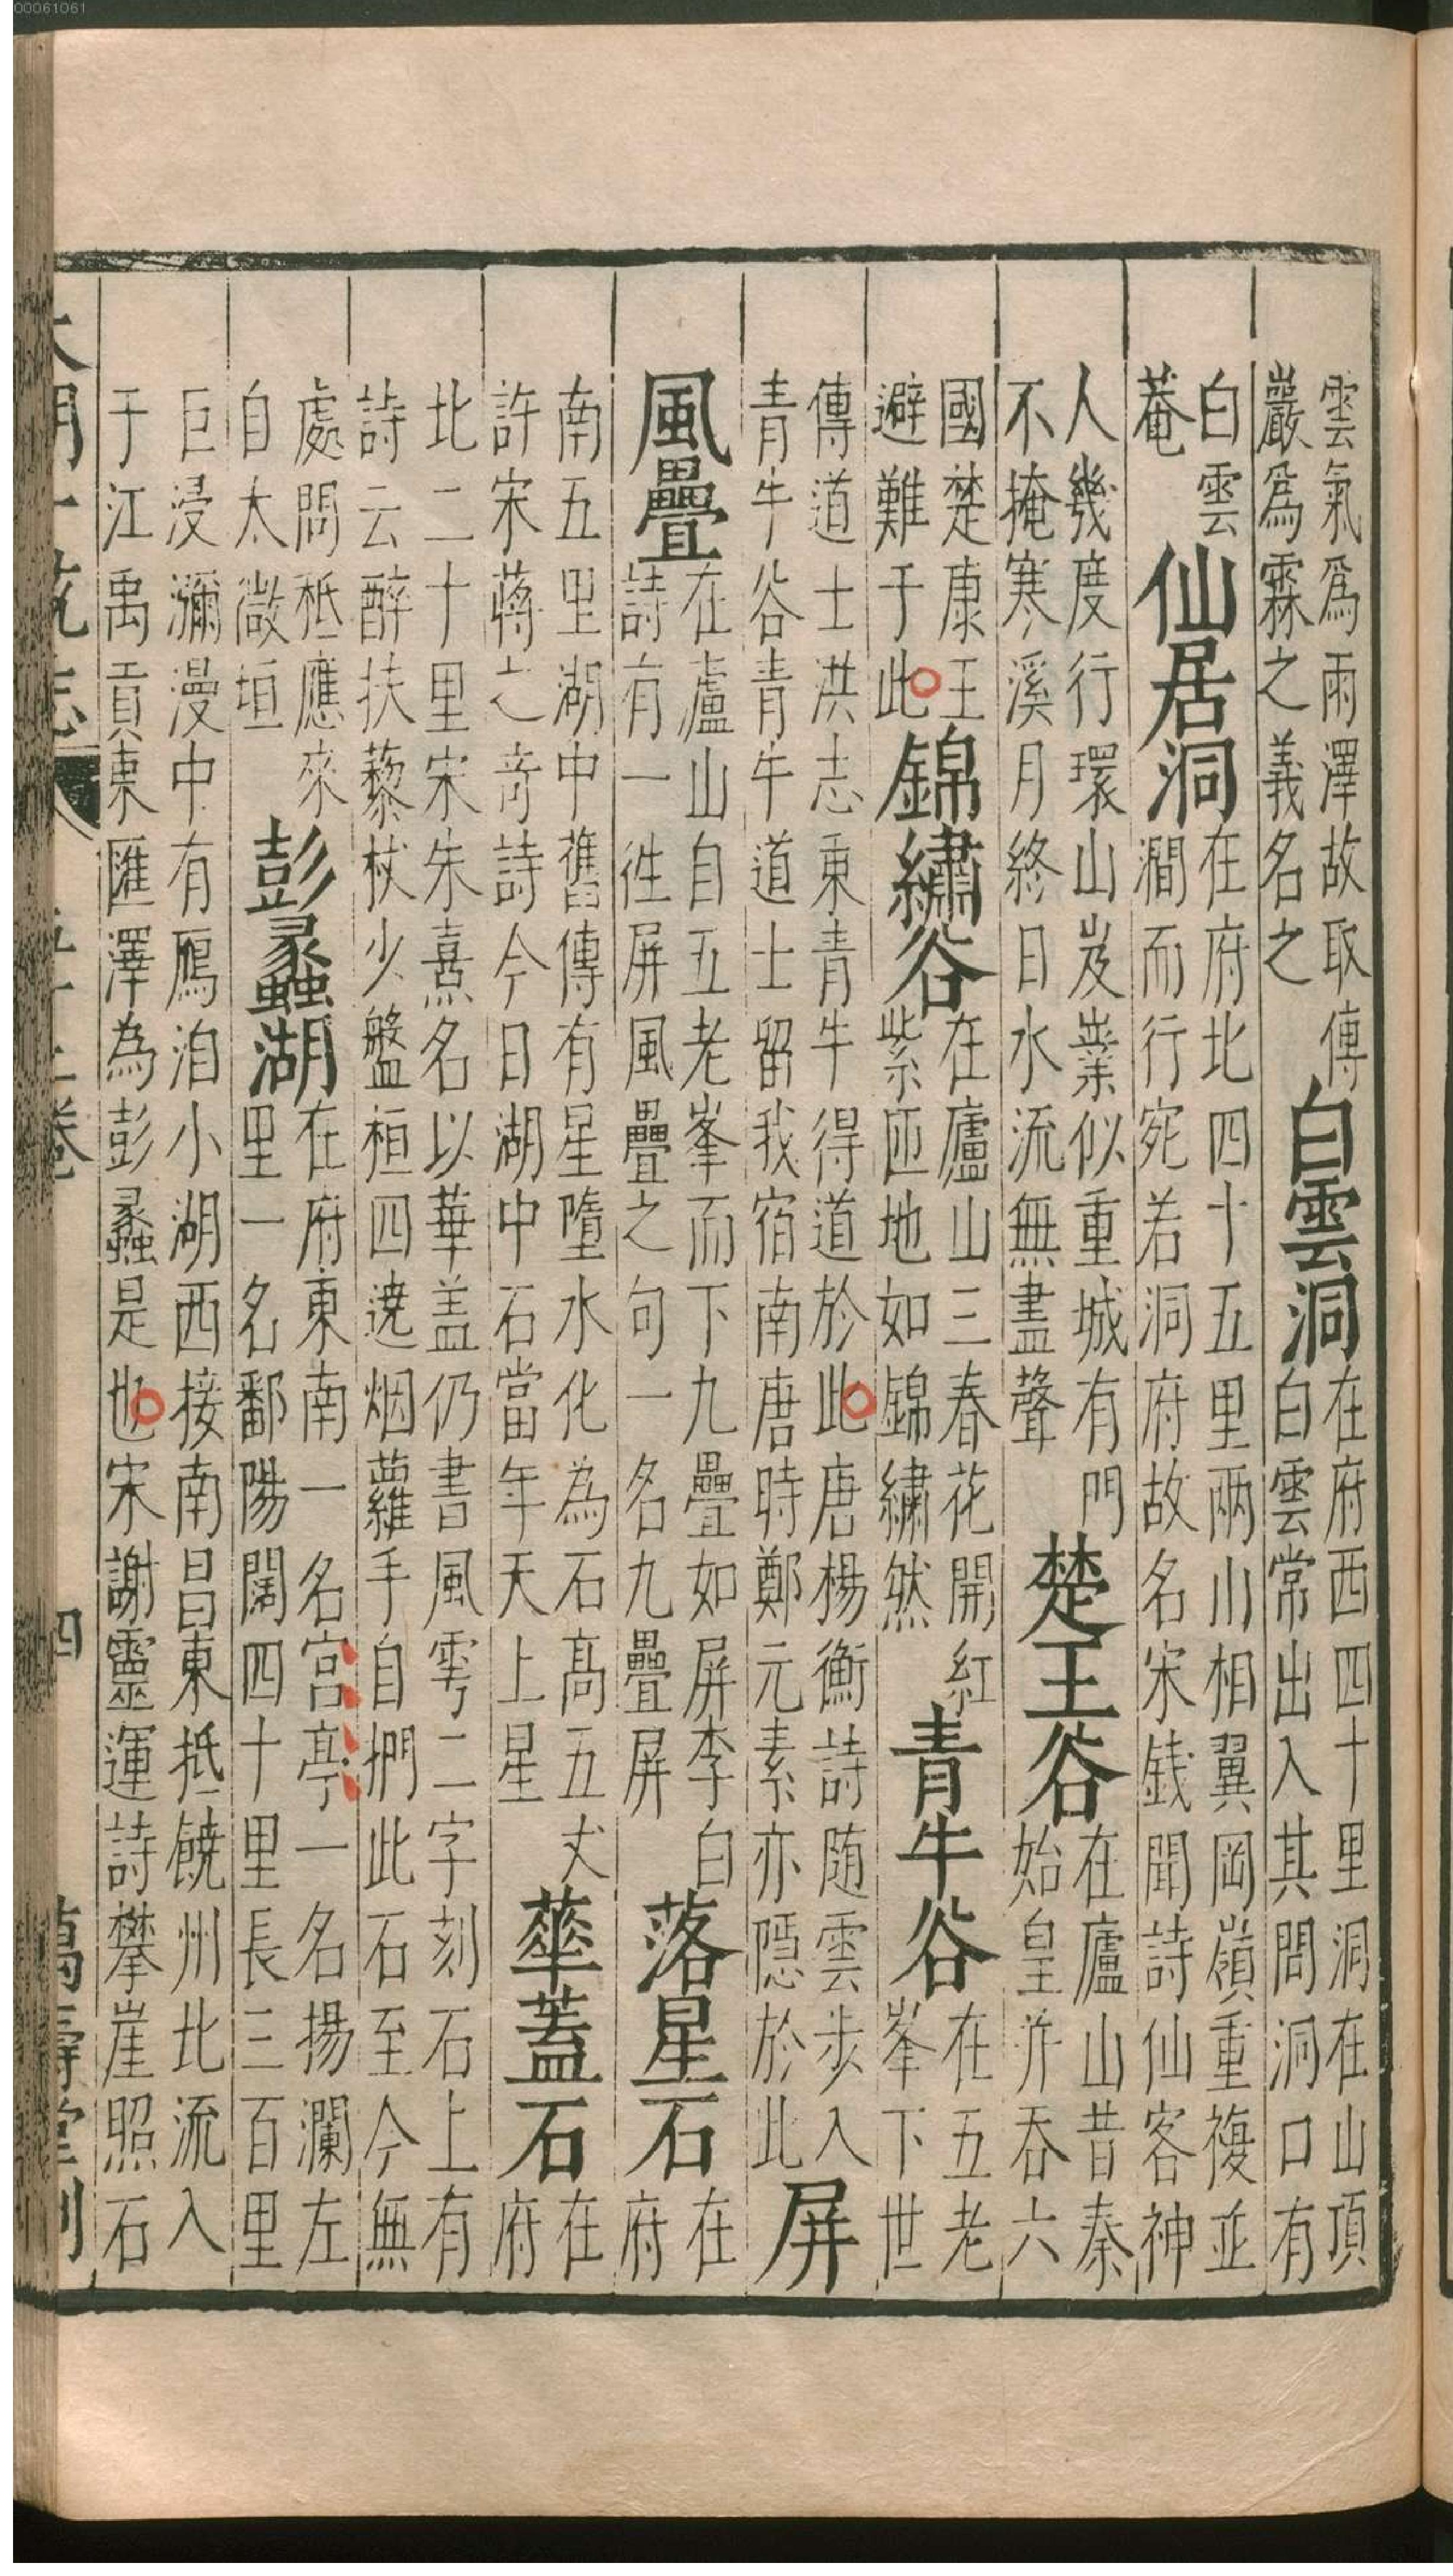 雲氣爲雨澤故取傳
巖爲霖之義名之
白雲洞
在府西四十里洞在山頂
白雲常出入其間洞口有
白雲
菴
仙居洞
在府北四十五里兩山相翼岡嶺重複並
澗而行宛若洞府故名宋錢聞詩仙客神
人幾度行環山岌嶪似重城有門
不掩寒溪月終日水流無盡聲
楚王谷
在廬山昔秦
始皇并吞六
國楚康王
避難于此
錦繡谷
在廬山三春花開紅
紫匝地如錦繡然
青牛谷
在五老
峯下世
傳道士洪志東青牛得道於此唐楊衡詩随雲步入
青牛谷青牛道士留我宿南唐時鄭元素亦隱於此
屏
風疊
在廬山自五老峯而下九疊如屏李白
詩有一徃屏風疊之句一名九疊屏
落星石
在
府
南五里湖中舊傳有星墮水化為石高五丈
許宋蔣之竒詩今日湖中石當年天上星
華蓋石
在
府
北二十里宋朱熹名以華盖仍書風雩二字刻石上有
詩云醉扶藜杖少盤桓四遶烟蘿手自捫此石至今無
處問秪應來
自太微垣
彭蠡湖
在府東南一名宮亭一名揚瀾左
里一名鄱陽闊四十里長三百里
巨浸瀰漫中有鴈泊小湖西接南昌東抵饒州北流入
于江禹貢東匯澤為彭蠡是也宋謝靈運詩攀崖照石
大明一統志
四
萬壽堂刊
00061061